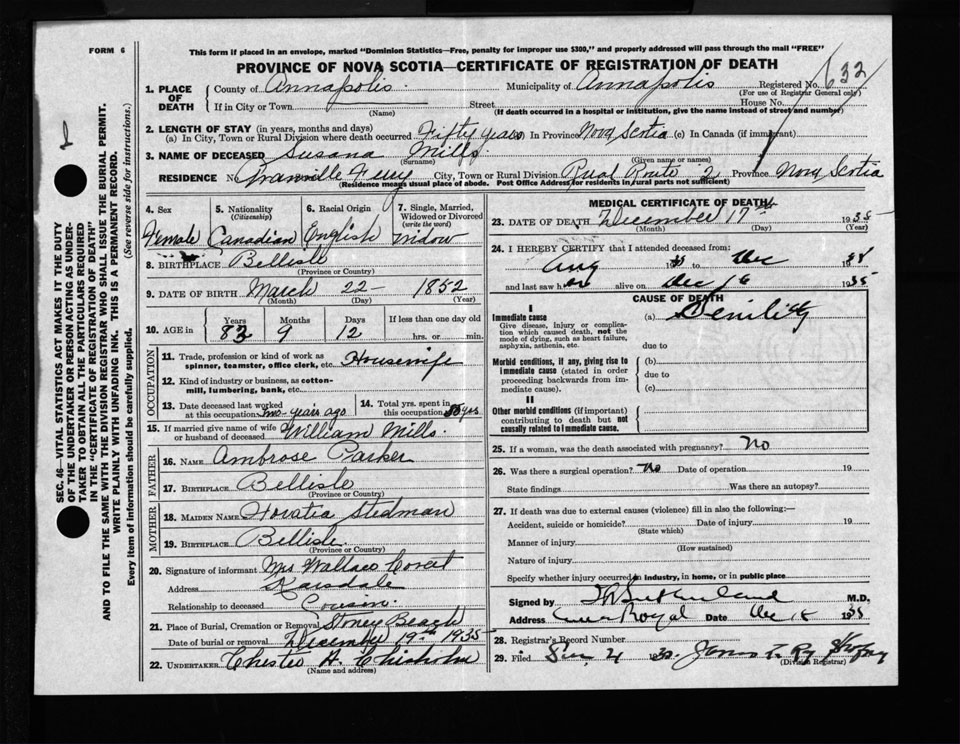 FORM 6
This form if placed in an envelope, marked "Dominion Statistics—Free, penalty for improper use $300," and properly addressed will pass through the mail "FREE"
PROVINCE OF NOVA SCOTIA—CERTIFICATE OF REGISTRATION OF DEATH
632
1. PLACE OF DEATH
County of Annapolis. Municipality of Annapolis Registered No.
(For use of Registrar General only)
If in City or Town Street House No.
(Name) (If death occurred in a hospital or institution, give the name instead of street and number)
2. LENGTH OF STAY (in years, months and days)
(a) In City, Town or Rural Division where death occurred Fifty years In Province Nova Scotia (c) In Canada (if immigrant)
3. NAME OF DECEASED Susana Mills
(Surname) (Given name or names)
RESIDENCE No. Granville Ferry City, Town or Rural Division Rural Route 2 Province Nova Scotia
(Residence means usual place of abode. Post Office Address for residents in rural parts not sufficient)
4. Sex 5. Nationality (Citizenship) 6. Racial Origin 7. Single, Married, Widowed or Divorced (write the word)
Female Canadian English Widow
8. BIRTHPLACE Bellisle
(Province or Country)
9. DATE OF BIRTH March 22 - 1852
(Month) (Day) (Year)
10. AGE in Years Months Days If less than one day old
83 9 12 hrs. or min.
OCCUPATION
11. Trade, profession or kind of work as spinner, teamster, office clerk, etc. Housewife
12. Kind of industry or business, as cotton-mill, lumbering, bank, etc.
13. Date deceased last worked at this occupation years ago
14. Total yrs. spent in this occupation 50 yrs
15. If married give name of wife or husband of deceased William Mills.
FATHER
16. NAME Ambrose Parker
17. BIRTHPLACE Bellisle
(Province or Country)
MOTHER
18. MAIDEN NAME Horatia Stedman
19. BIRTHPLACE Bellisle.
(Province or Country)
20. Signature of informant Mrs Wallace Covert
Address Karsdale
Relationship to deceased Cousin.
21. Place of Burial, Cremation or Removal Stoney Beach
Date of burial or removal December 19th 1935
22. UNDERTAKER Chester H. Chisholm
(Name and address)
MEDICAL CERTIFICATE OF DEATH
23. DATE OF DEATH December 17th 1935
(Month) (Day) (Year)
24. I HEREBY CERTIFY that I attended deceased from:
Aug to Dec 19
and last saw her alive on Dec 16 1935
CAUSE OF DEATH
I
Immediate cause
Give disease, injury or complication which caused death, not the mode of dying, such as heart failure, asphyxia, asthenia, etc.
(a) Senility
due to
Morbid conditions, if any, giving rise to immediate cause (stated in order proceeding backwards from immediate cause).
(b)
due to
(c)
II
Other morbid conditions (if important) contributing to death but not causally related to immediate cause.
25. If a woman, was the death associated with pregnancy? No
26. Was there a surgical operation? No Date of operation 19
State findings Was there an autopsy?
27. If death was due to external causes (violence) fill in also the following:—
Accident, suicide or homicide? Date of injury 19
(State which)
Manner of injury
(How sustained)
Nature of injury
Specify whether injury occurred in industry, in home, or in public place
Signed by Sutherland M.D.
Address Royal Date Dec 18 1935
28. Registrar's Record Number
29. Filed 19
(Division Registrar)
SEC. 46—VITAL STATISTICS ACT MAKES IT THE DUTY
OF THE UNDERTAKER OR PERSON ACTING AS UNDERTAKER
TO OBTAIN ALL THE PARTICULARS REQUIRED
IN THE "CERTIFICATE OF REGISTRATION OF DEATH"
AND TO FILE THE SAME WITH THE DIVISION REGISTRAR WHO SHALL ISSUE THE BURIAL PERMIT.
WRITE PLAINLY WITH UNFADING INK. THIS IS A PERMANENT RECORD.
Every item of information should be carefully supplied. (See reverse side for instructions.)